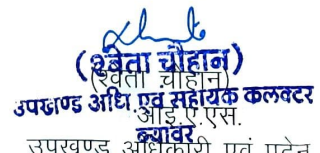 (श्वेता चौहान)
(श्वेता चौहान)
उपखण्ड अधि. एवं सहायक कलक्टर
आई.ए.एस.
ब्यावर
उपखण्ड अधिकारी एवं पदेन